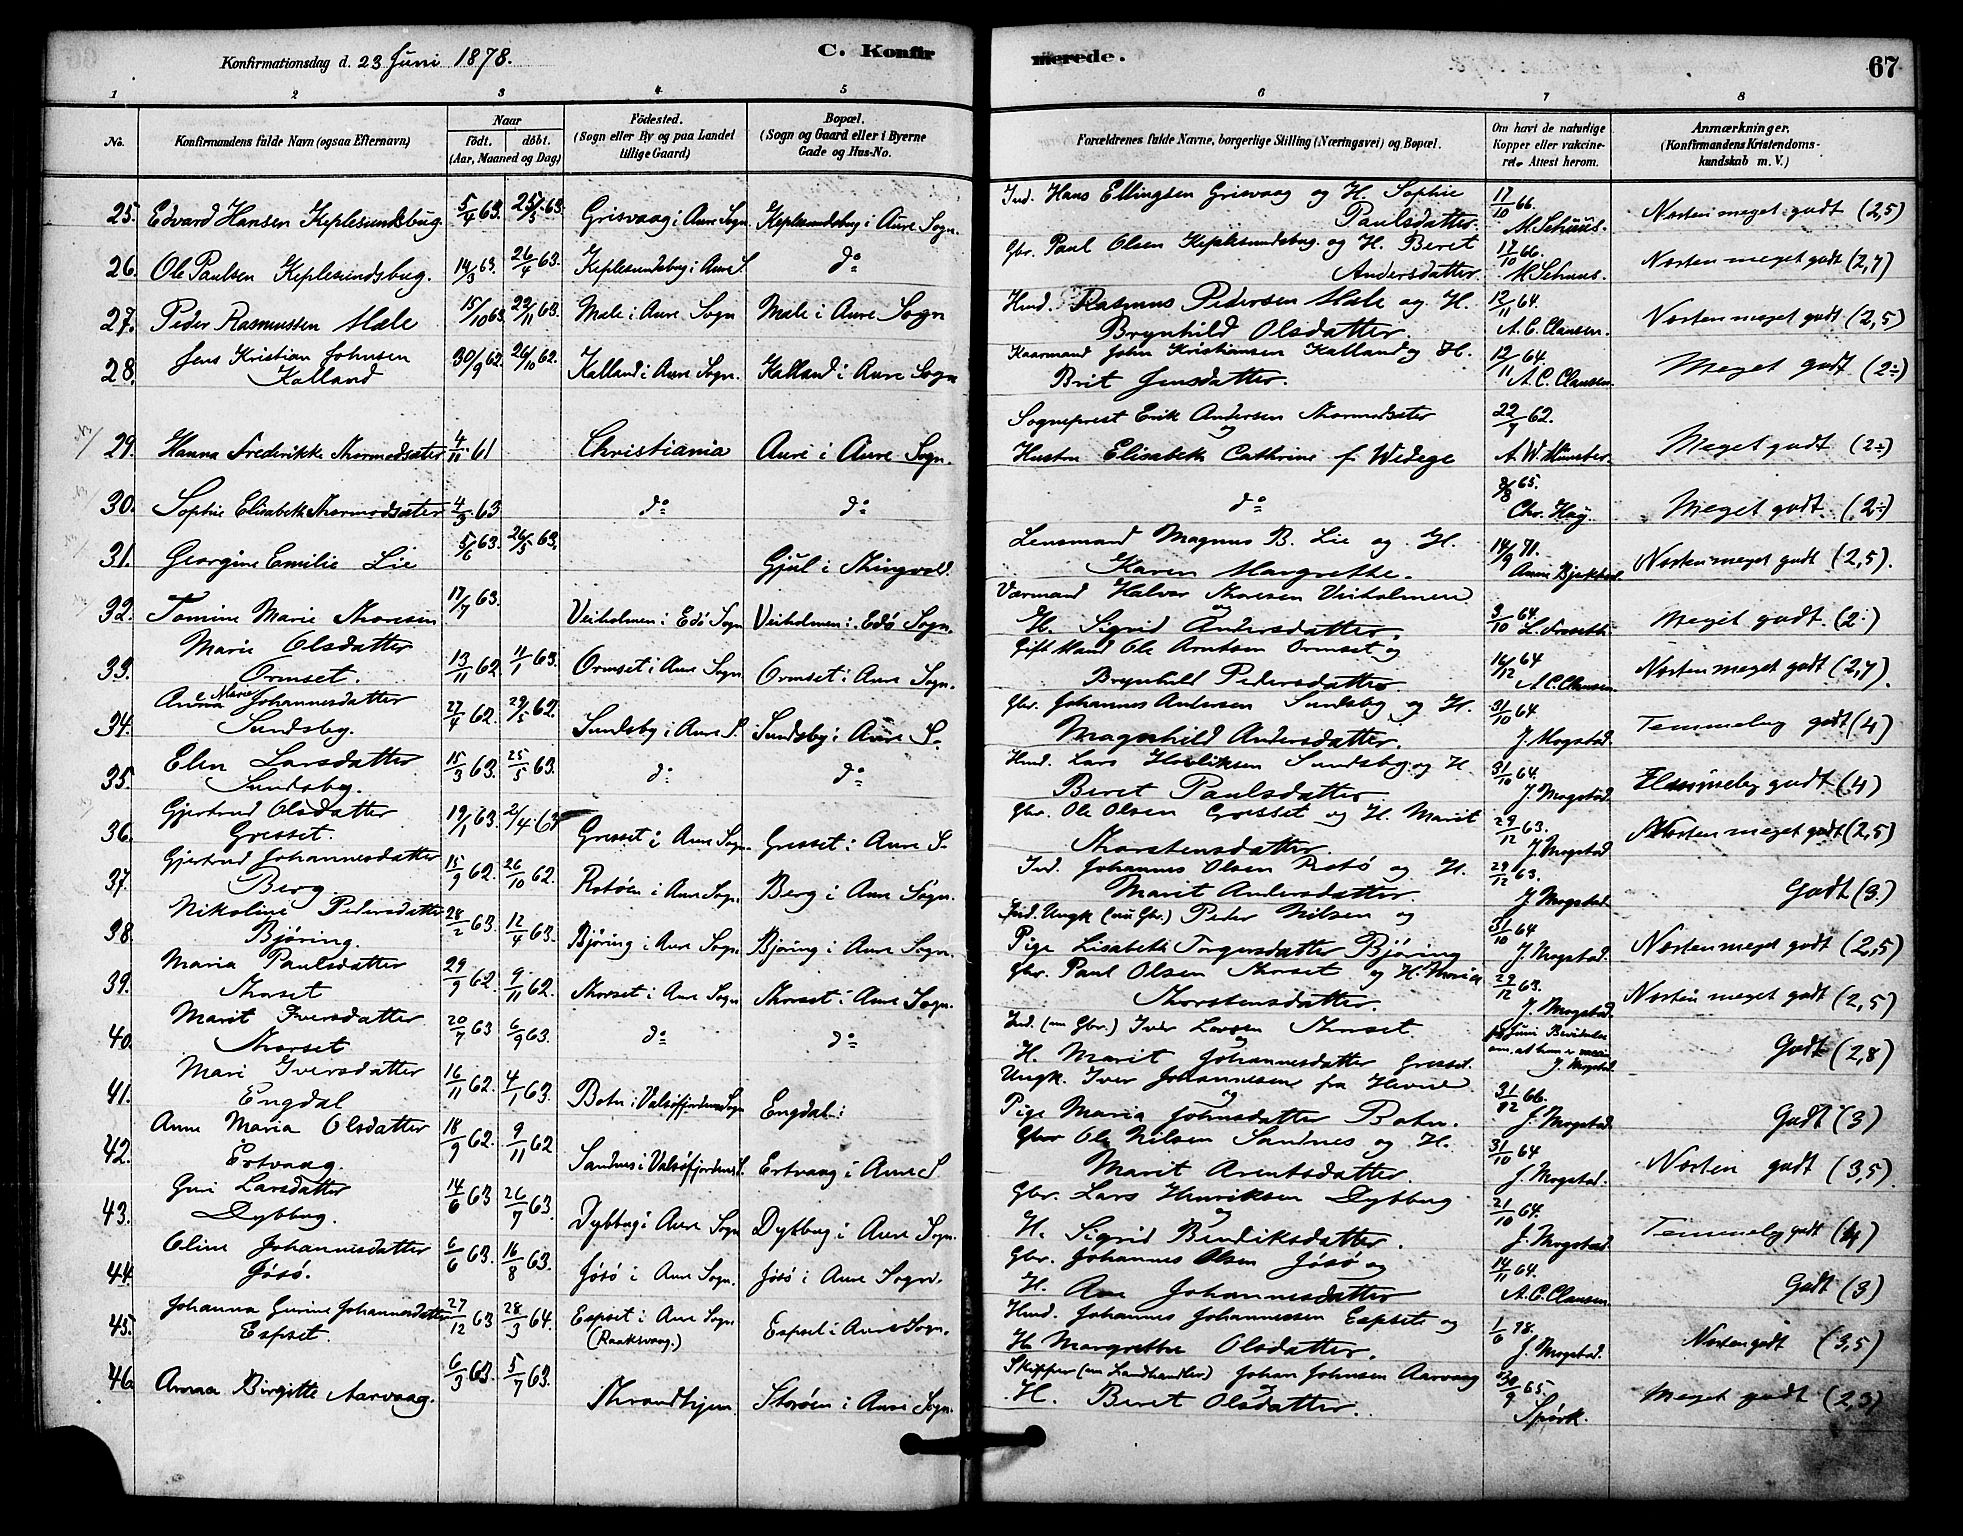 Konfirmationsdag d. 23 Juni 1878.
C. Konfirmerede.
67
1 2 3 4 5 6 7 8
No.
Konfirmandens fulde Navn (ogsaa Efternavn)
Naar
Födt. döbt.
(Aar, Maaned og Dag)
Födested.
(Sogn eller By og paa Landet
tillige Gaard)
Bopæl.
(Sogn og Gaard eller i Byerne
Gade og Hus-No.
Forældrenes fulde Navne, borgerlige Stilling (Næringsvei) og Bopæl.
Om havt de naturlige
Kopper eller vakcine-
ret. Attest herom.
Anmærkninger.
(Konfirmandens Kristendoms-
kundskab m. V.)
25. Edvard Hansen Keplesundsbug. 5/4 63. 25/5 63. Grisvaag i Aure Sogn. Keplesundsbug i Aure Sogn. Ind. Hans Ellingsen Grisvaag og H. Sophie
Paulsdatter. 17/10 66. M. Schuus. Næsten meget godt (2,5)
26. Ole Paulsen Keplesundsbug. 14/3 63. 26/4 63. Keplesundsbug i Aure S. do Gbr. Paul Olsen Keplesundsbug. og H. Beret
Andersdatter. 17/10 66. M. Schuus. Næsten meget godt (2,7)
27. Peder Rasmussen Mæle 15/10 63 22/11 63. Mæle i Aure Sogn Mæle i Aure Sogn Hmd. Rasmus Pedersen Mæle og H.
Brynhild Olsdatter 12/11 64. A. C. Clausen. Næsten meget godt (2,5)
28. Jens Kristian Johnsen
Kalland 30/9 62. 26/10 62. Kalland i Aure Sogn. Kalland i Aure Sogn Kaarmand John Kristiansen Kalland og H.
Brit Jensdatter. 12/11 64. A. C. Clausen. Meget godt (2÷)
29. Hanna Frederikke Thormodsæter 4/11 61 Christiania Aure i Aure Sogn. Sogneprest Erik Andersen Thormodsæter
og
Hustru Elisabeth Cathrine f. Wedege 22/9 62. A. W. Münster. Meget godt (2÷)
30. Sophie Elisabeth Thormodsæter 4/3 63 do do do 8/8 65. Chr. Høy. Meget godt. (2÷)
31. Georgine Emilie Lie 5/6 63. 26/5 63. Gjul i Thingvold. Lensmand Magnus B. Lie og H.
Karen Margrethe. 14/9 71. Næsten meget godt (2,5).
32. Tomine Marie Thoresen 17/7 63. Veiholmen i Edö Sogn Veiholmen i Edö Sogn. Værmand Halvor Thoresen Veiholmen
og
H. Sigrid Andersdatter. 3/10 64. Meget godt. (2÷)
33. Marie Olsdatter
Ormset. 13/11 62 11/1 63. Ormset i Aure Sogn Ormset i Aure Sogn. Gift Mand Ole Arntsen Ormset og
Brynhild Pedersdatter 16/12 64 A. C. Clausen Næsten meget godt (2,7).
34. Anna Marie Johannesdatter
Sundsby. 27/4 62. 29/5 62. Sundsby i Aure S. Sundsby i Aure S. Gbr. Johannes Andersen Sundsby og H.
Magnhild Andersdatter. 31/10 64. J. Mogstad. Temmelig godt (4)
35. Elen Larsdatter
Sundsby. 15/3 63. 25/5 63. do do Hmd. Lars Henriksen Sundsby og H
Beret Paulsdatter 31/10 64. J. Mogstad. Temmelig godt (4)
36. Gjertrud Olsdatter
Gresset. 19/1 63. 2/4 63 Gresset i Aure Sogn. Gresset i Aure S. Gbr. Ole Olsen Gresset og H. Marit
Thorstensdatter. 29/12 63. J. Mogstad Næsten meget godt (2,5)
37. Gjertrud Johannesdatter
Berg. 15/9 62. 26/10 62. Rotöen i Aure Sogn. Berg i Aure Sogn. Ind. Johannes Olsen Rotö og H.
Marit Andersdatter. 29/12 63. J. Mogstad. Godt (3)
38. Nikoline Pedersdatter
Bjøring. 28/2 63. 12/4 63. Bjøring i Aure Sogn. Bjøring i Aure Sogn. Ind. Ungk. (nu Gbr.) Peder Nilsen og
Pige Lisabeth Torgersdatter Bjøring 31/10 64 J. Mogstad. Næsten meget godt (2,5)
39. Maria Paulsdatter
Thorset 29/9 62. 9/11 62. Thorset i Aure Sogn Thorset i Aure Sogn. Gbr. Paul Olsen Thorset og H. Maria
Thorstensdatter. 29/12 63. J. Mogstad. Næsten meget godt (2,5)
40. Marit Iversdatter
Thorset 20/7 63 6/9 63. do do Ind. (nu Gbr.) Iver Larsen Thorset
og
H. Marit Johannesdatter Gresset. J. Mogstad Godt (2,8)
41. Mari Iversdatter
Engdal 16/11 62. 4/1 63. Botn i Valsøfjordens Sogn Engdal i Ungk. Iver Johannesen fra Hevne
og
Pige Maria Johnsdatter Botn. 31/12 66. J. Mogstad. Godt (3)
42. Anne Maria Olsdatter
Ertvaag. 18/9 62. 9/11 62 Sandnes i Valsøfjordens S. Ertvaag i Aure S. Gbr Ole Nilsen Sandnes og H.
Marit Arentsdatter. 31/10 64 J. Mogstad. Næsten godt (3,5).
43. Guri Larsdatter
Dybbug. 14/6 63 26/7 63. Dybbug i Aure Sogn Dybbug i Aure Sogn. Gbr. Lars Henriksen Dybbug
og
H. Sigrid Bendiksdatter. 21/10 64. J. Mogstad. Temmelig godt (4)
44. Oline Johannesdatter
Jösö. 6/6 63. 16/8 63. Jösö i Aure Sogn. Jösö i Aure Sogn. Gbr. Johannes Olsen Jösö og
H. Ane Johannesdatter 14/11 64. A. C. Clausen. Godt (3)
45. Johanna Gurine Johannesdatter
Espset. 27/12 63 28/3 64. Espset i Aure Sogn
(Raaksvaag.) Espset i Aure Sogn. Hmd. Johannes Johannessen Espset og
H. Margrethe Olsdatter. 1/6 78. J. Mogstad. Næsten godt (3,5)
46. Anna Birgitte Aarvaag. 6/3 63. 5/7 63. Throndhjem. Storöen i Aure Sogn. Skipper (nu Landhandler) Johan Johnsen Aarvaag
og
H. Beret Olsdatter. 30/9 65. Spørk. Meget godt (2,3)